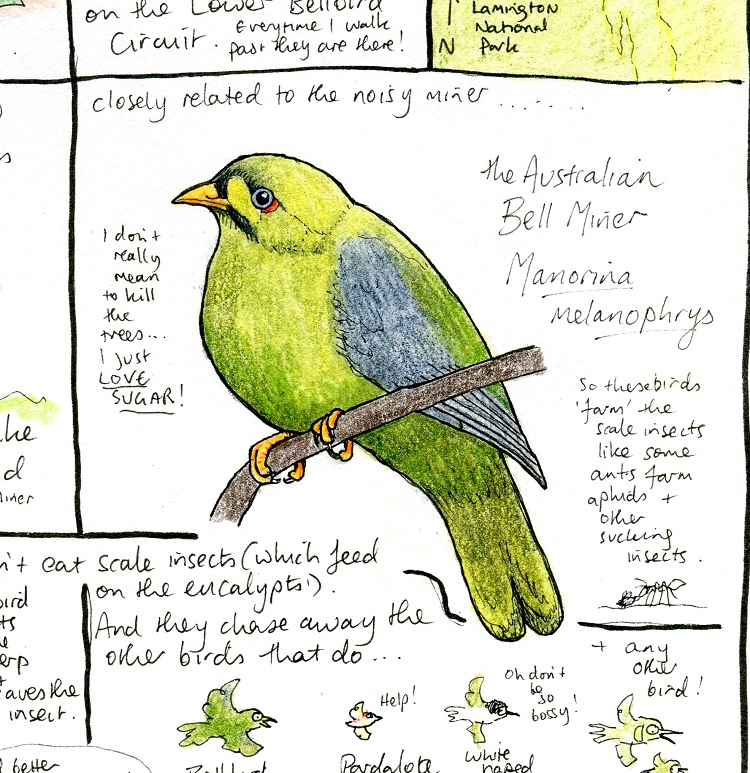 on the Lower Bellbird
Circuit. Everytime I walk
past they are there!
N
Lamington
National
Park
closely related to the noisy miner ........
the Australian
Bell Miner
Manorina
melanophrys
I don't
really
mean
to kill
the
trees...
I just
LOVE
SUGAR!
So these birds
'farm' the
scale insects
like some
ants farm
aphids +
other
sucking
insects.
the
d
iner
n't eat scale insects (which feed
on the eucalypts!).
And they chase away the
other birds that do...
bird
ts
erp
t
eaves the
insect.
better
Help!
Pardalote
Oh don't
be
so
bossy!
White
naped
+ any
other
bird!